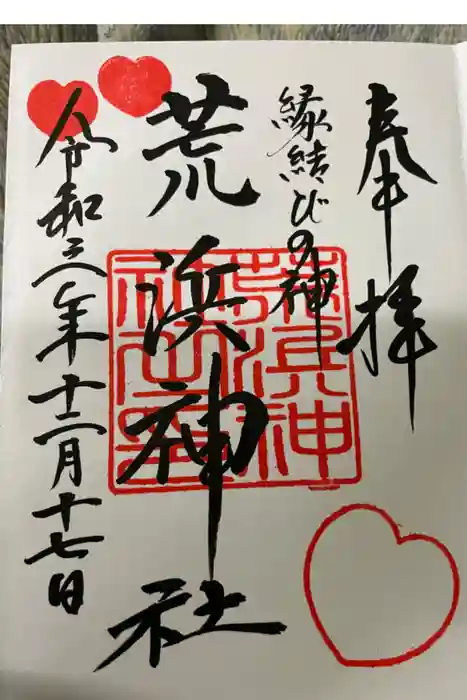 奉拝
縁結びの神
荒浜神社
令和三年十二月十七日